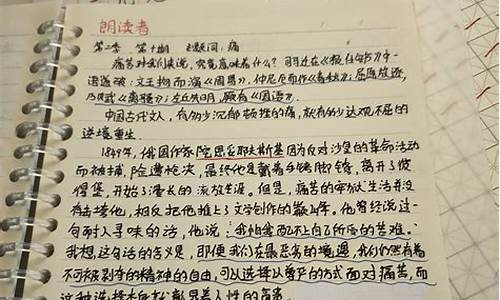 朗读者
第二季 第十期 主题词:痛
痛苦对我们来说,究竟意味着什么?司马迁在《报任安书》中一
语道破:文王拘而演《周易》,仲尼厄而作《春秋》;屈原放逐,
乃赋《离骚》;左丘失明,厥有《国语》.
中国古代文人,有多少沉郁顿挫的痛,就有多少达观不屈的
逆境重生.
1849年,俄国作家陀思妥耶夫斯基因为反对沙皇的革命活动
而被捕,险遭枪决,最终他是戴着手铐脚镣,离开了彼
得堡,开始了漫长的流放生涯.但是,痛苦的牢狱生活并没
有击垮他,相反把他推上了文学创作的巅峰.他曾经说过一
句耐人寻味的话,他说:我怕我配不上自己所受的苦难.
我想,这句话的含义是,即便我们在最恶劣的境遇,我们仍然有着
不可被剥夺的精神的自由,可以选择以尊严的方式面对痛苦,而
这种选择本身就彰显着人性的高贵